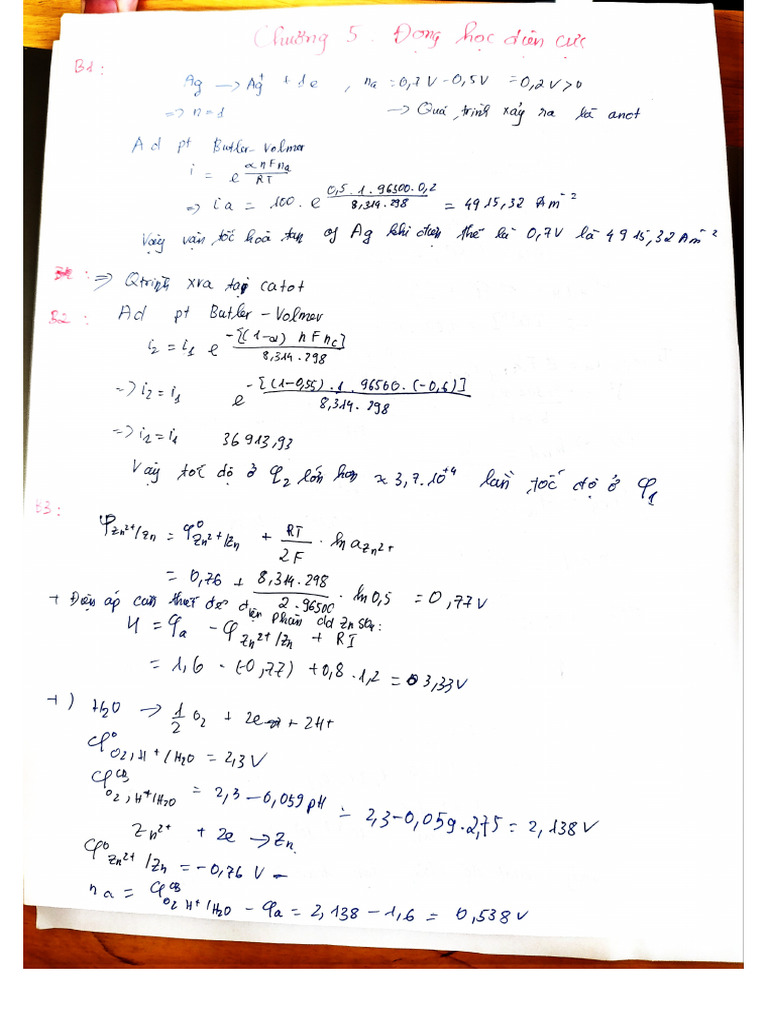 Chương 5. Động học điện cực
B1:
Ag → Ag⁺ + 1e, na = 0,7V - 0,5V = 0,2V > 0
=> n = 1 → Quá trình xảy ra là anot
Ad pt Butler-Volmer
i = e^(αnFna/RT)
=> ia = 100. e^(0,5.1.96500.0,2/8,314.298) = 4915,32 Am⁻²
Vậy vận tốc hoà tan of Ag khi điện thế là 0,7V là 4915,32 Am⁻²
=> Qtrình xra tại catot
B2: Ad pt Butler-Volmer
i₂ = i₁ e^(-[(1-α) nFnc]/8,314.298)
=> i₂ = i₁ e^(-[(1-0,55).1.96500.(-0,6)]/8,314.298)
=> i₂ = i₁ 36913,93
Vậy tốc độ ở φ₂ lớn hơn ≈ 3,7.10⁺⁴ lần tốc độ ở φ₁
B3:
φZn²⁺/Zn = φ⁰Zn²⁺/Zn + RT/2F . ln aZn²⁺
= 0,76 + 8,314.298/2.96500 . ln 0,5 = 0,77V
+ Điện áp cần thiết để điện phân dd ZnSO₄:
U = φa - φZn²⁺/Zn + RI
= 1,6 - (-0,77) + 0,8.1,2 = 3,33V
+) H₂O → 1/2 O₂ + 2e + 2H⁺
φ⁰O₂,H⁺/H₂O = 2,3V
φᶜᵇO₂,H⁺/H₂O = 2,3 - 0,059pH = 2,3 - 0,059.2,75 = 2,138V
Zn²⁺ + 2e → Zn.
φ⁰Zn²⁺/Zn = -0,76 V -
na = φᶜᵇO₂ H⁺/H₂O - φa = 2,138 - 1,6 = 0,538V